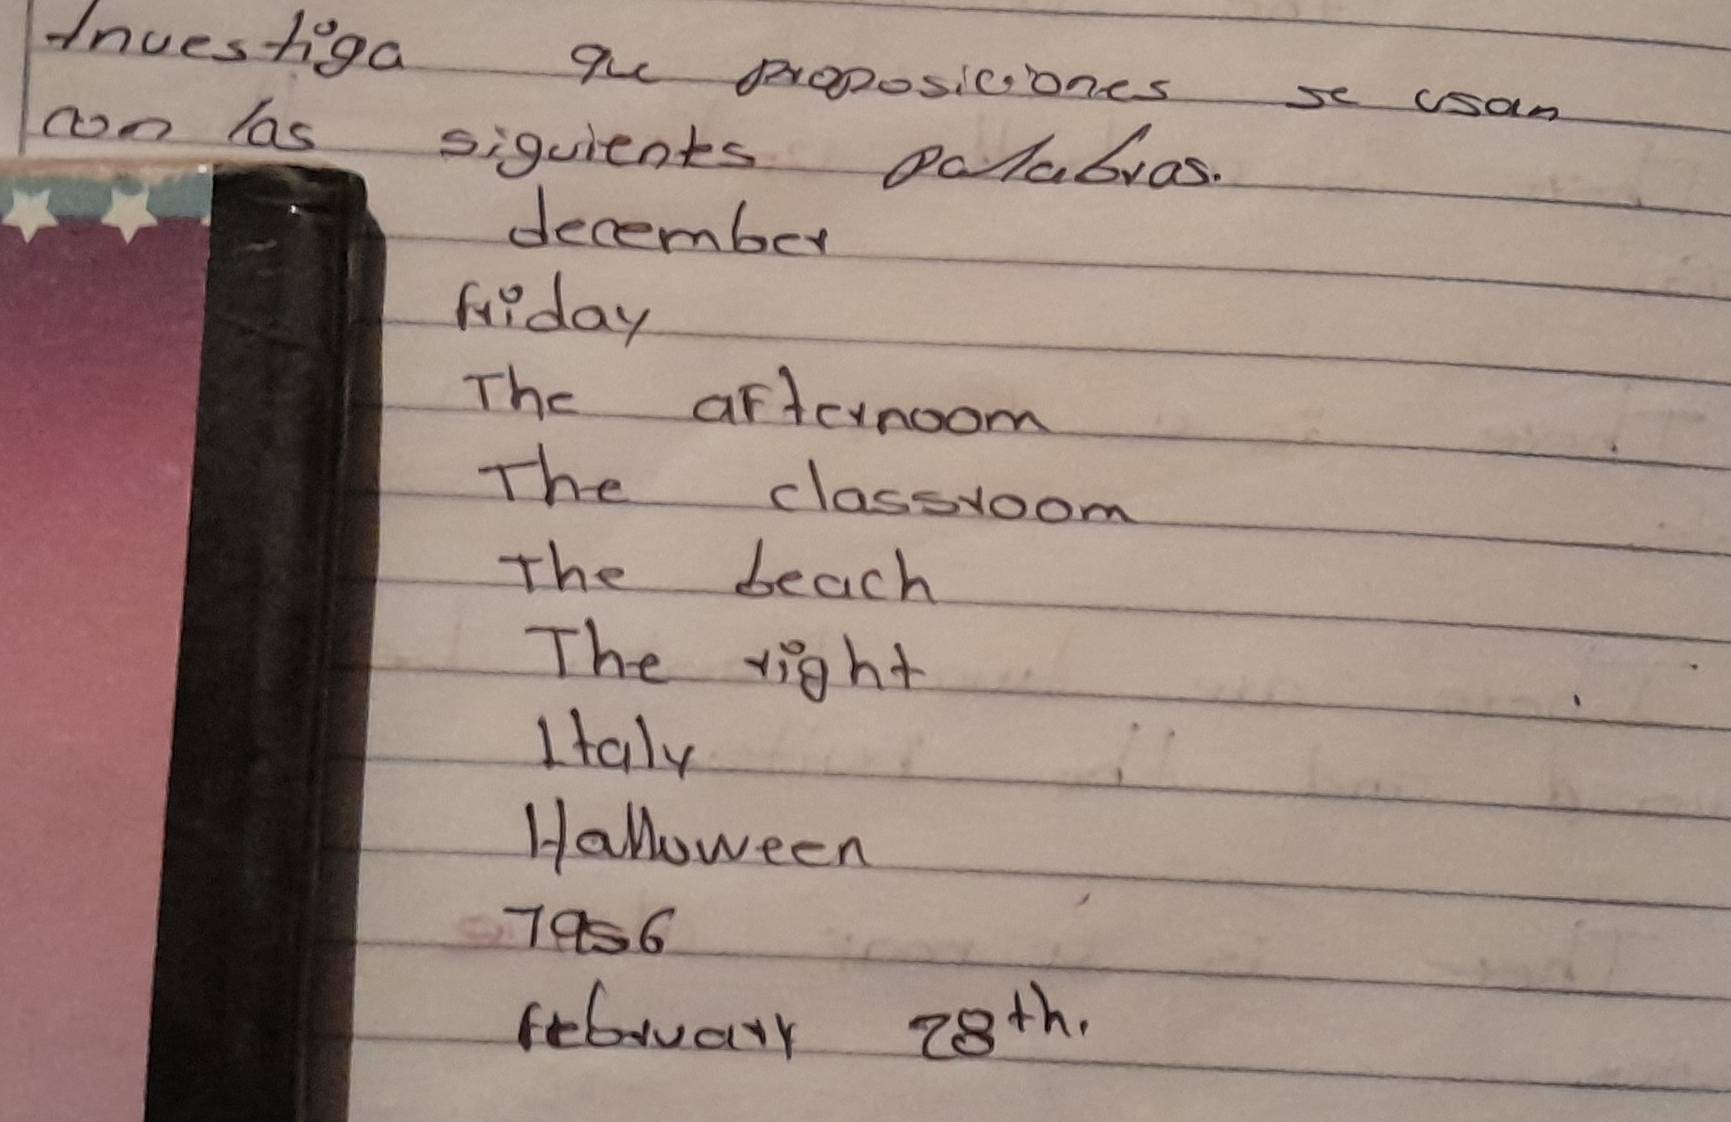 Investiga que proposiciones se usan
con las siguientes palabras.
december
friday
The afternoom
The classroom
The beach
The right
Italy
Halloween
1956
february 28th.